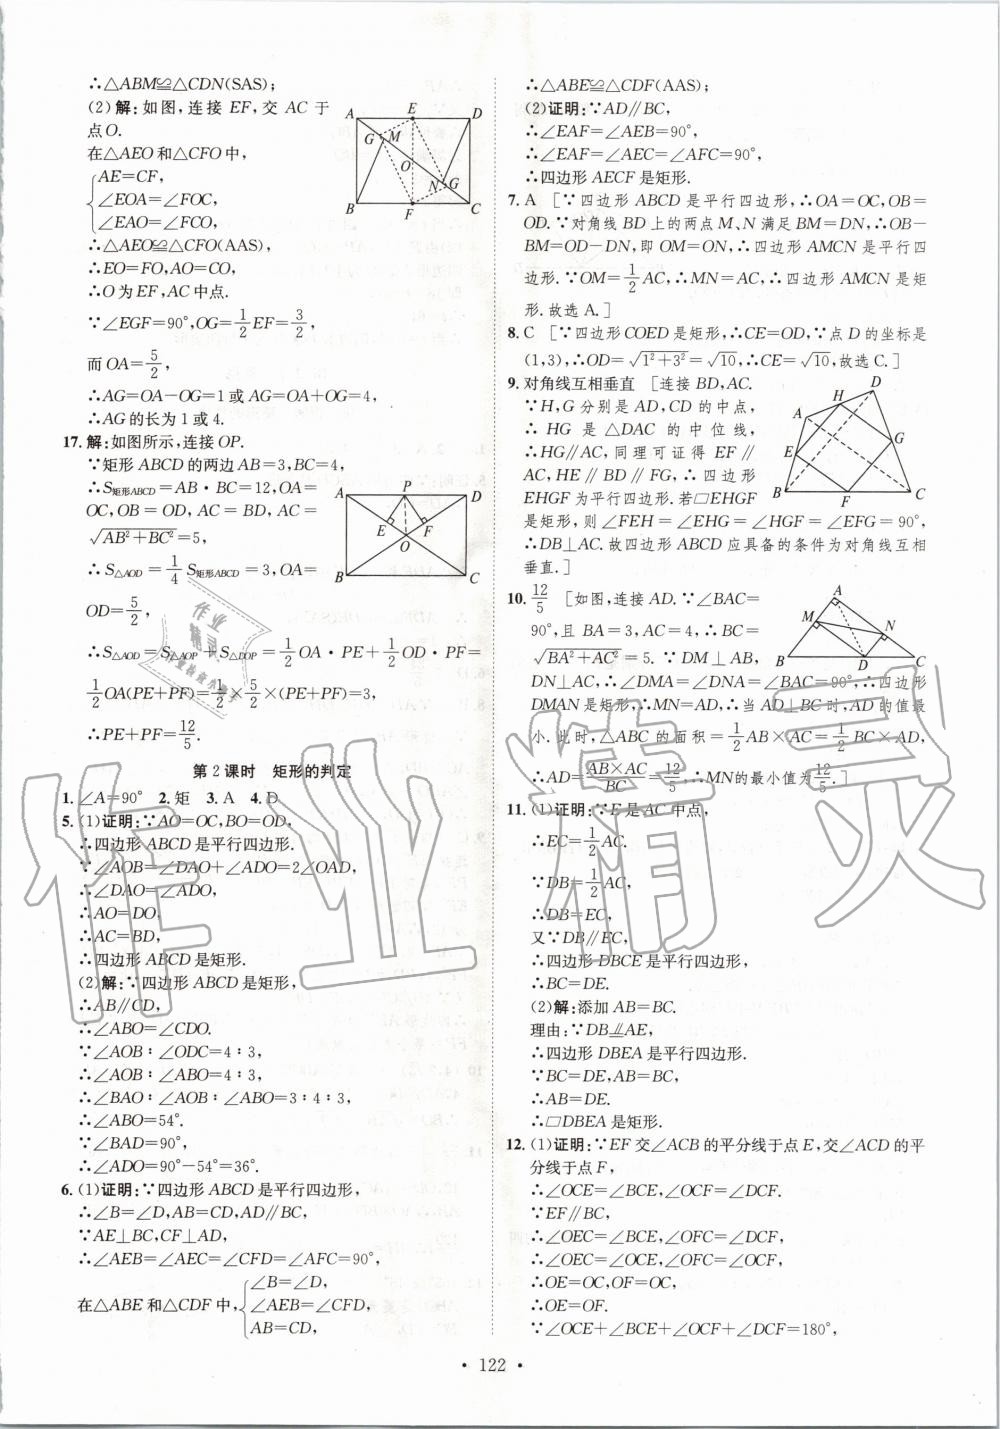 ∴△ABM≌△CDN(SAS);
(2)解:如图,连接 EF,交 AC 于
点O.
在△AEO和△CFO中,
AE=CF,
∠EOA=∠FOC,
∠EAO=∠FCO,
∴△AEO≌△CFO(AAS),
∴EO=FO,AO=CO,
∴O为EF,AC中点.
∵∠EGF=90°,OG=1/2EF=3/2,
而OA=5/2,
∴AG=OA-OG=1或AG=OA+OG=4,
∴AG的长为1或4.
17.解:如图所示,连接OP.
∵矩形ABCD的两边AB=3,BC=4,
∴S矩形ABCD=AB·BC=12,OA=
OC,OB=OD,AC=BD,AC=
√(AB²+BC²)=5,
∴S△AOD=1/4 S矩形ABCD=3,OA=
OD=5/2,
∴S△AOD=S△AOP+S△DOP=1/2OA·PE+1/2OD·PF=
1/2OA(PE+PF)=1/2×5/2×(PE+PF)=3,
∴PE+PF=12/5.
第2课时 矩形的判定
1.∠A=90° 2.矩 3.A 4.D
5.(1)证明:∵AO=OC,BO=OD,
∴四边形ABCD是平行四边形.
∵∠AOB=∠DAO+∠ADO=2∠OAD,
∴∠DAO=∠ADO,
∴AO=DO,
∴AC=BD,
∴四边形ABCD是矩形.
(2)解:∵四边形ABCD是矩形,
∴AB∥CD,
∴∠ABO=∠CDO.
∵∠AOB∶∠ODC=4∶3,
∴∠AOB∶∠ABO=4∶3,
∴∠BAO∶∠AOB∶∠ABO=3∶4∶3,
∴∠ABO=54°.
∵∠BAD=90°,
∴∠ADO=90°-54°=36°.
6.(1)证明:∵四边形ABCD是平行四边形,
∴∠B=∠D,AB=CD,AD∥BC,
∵AE⊥BC,CF⊥AD,
∴∠AEB=∠AEC=∠CFD=∠AFC=90°,
∠B=∠D,
在△ABE和△CDF中,∠AEB=∠CFD,
AB=CD,
∴△ABE≌△CDF(AAS);
(2)证明:∵AD∥BC,
∴∠EAF=∠AEB=90°,
∴∠EAF=∠AEC=∠AFC=90°,
∴四边形AECF是矩形.
7.A [∵四边形ABCD是平行四边形,∴OA=OC,OB=
OD.∵对角线BD上的两点M、N满足BM=DN,∴OB-
BM=OD-DN,即OM=ON,∴四边形AMCN是平行四
边形.∵OM=1/2AC,∴MN=AC,∴四边形AMCN是矩
形.故选A.]
8.C [∵四边形COED是矩形,∴CE=OD,∵点D的坐标是
(1,3),∴OD=√(1²+3²)=√10,∴CE=√10,故选C.]
9.对角线互相垂直 [连接BD,AC.
∵H,G分别是AD,CD的中点,
∴HG是△DAC的中位线,
∴HG∥AC,同理可证得EF∥
AC,HE∥BD∥FG,∴四边形
EHGF为平行四边形.若▱EHGF
是矩形,则∠FEH=∠EHG=∠HGF=∠EFG=90°,
∴DB⊥AC.故四边形ABCD应具备的条件为对角线互相
垂直.]
10.12/5 [如图,连接AD.∵∠BAC=
90°,且BA=3,AC=4,∴BC=
√(BA²+AC²)=5.∵DM⊥AB,
DN⊥AC,∴∠DMA=∠DNA=∠BAC=90°,∴四边形
DMAN是矩形,∴MN=AD,∴当AD⊥BC时,AD的值最
小.此时,△ABC的面积=1/2AB×AC=1/2BC×AD,
∴AD=AB×AC/BC=12/5,∴MN的最小值为12/5.]
11.(1)证明:∵E是AC中点,
∴EC=1/2AC.
∵DB=1/2AC,
∴DB=EC,
又∵DB∥EC,
∴四边形DBCE是平行四边形,
(2)解:添加AB=BC.
理由:∵DB⫽AE,
∴四边形DBEA是平行四边形.
∵BC=DE,AB=BC,
∴AB=DE.
∴▱DBEA是矩形.
12.(1)证明:∵EF交∠ACB的平分线于点E,交∠ACD的平
分线于点F,
∴∠OCE=∠BCE,∠OCF=∠DCF.
∵EF∥BC,
∴∠OEC=∠BCE,∠OFC=∠DCF,
∴∠OEC=∠OCE,∠OFC=∠OCF,
∴OE=OC,OF=OC,
∴OE=OF.
∵∠OCE+∠BCE+∠OCF+∠DCF=180°,
• 122 •
作业精灵